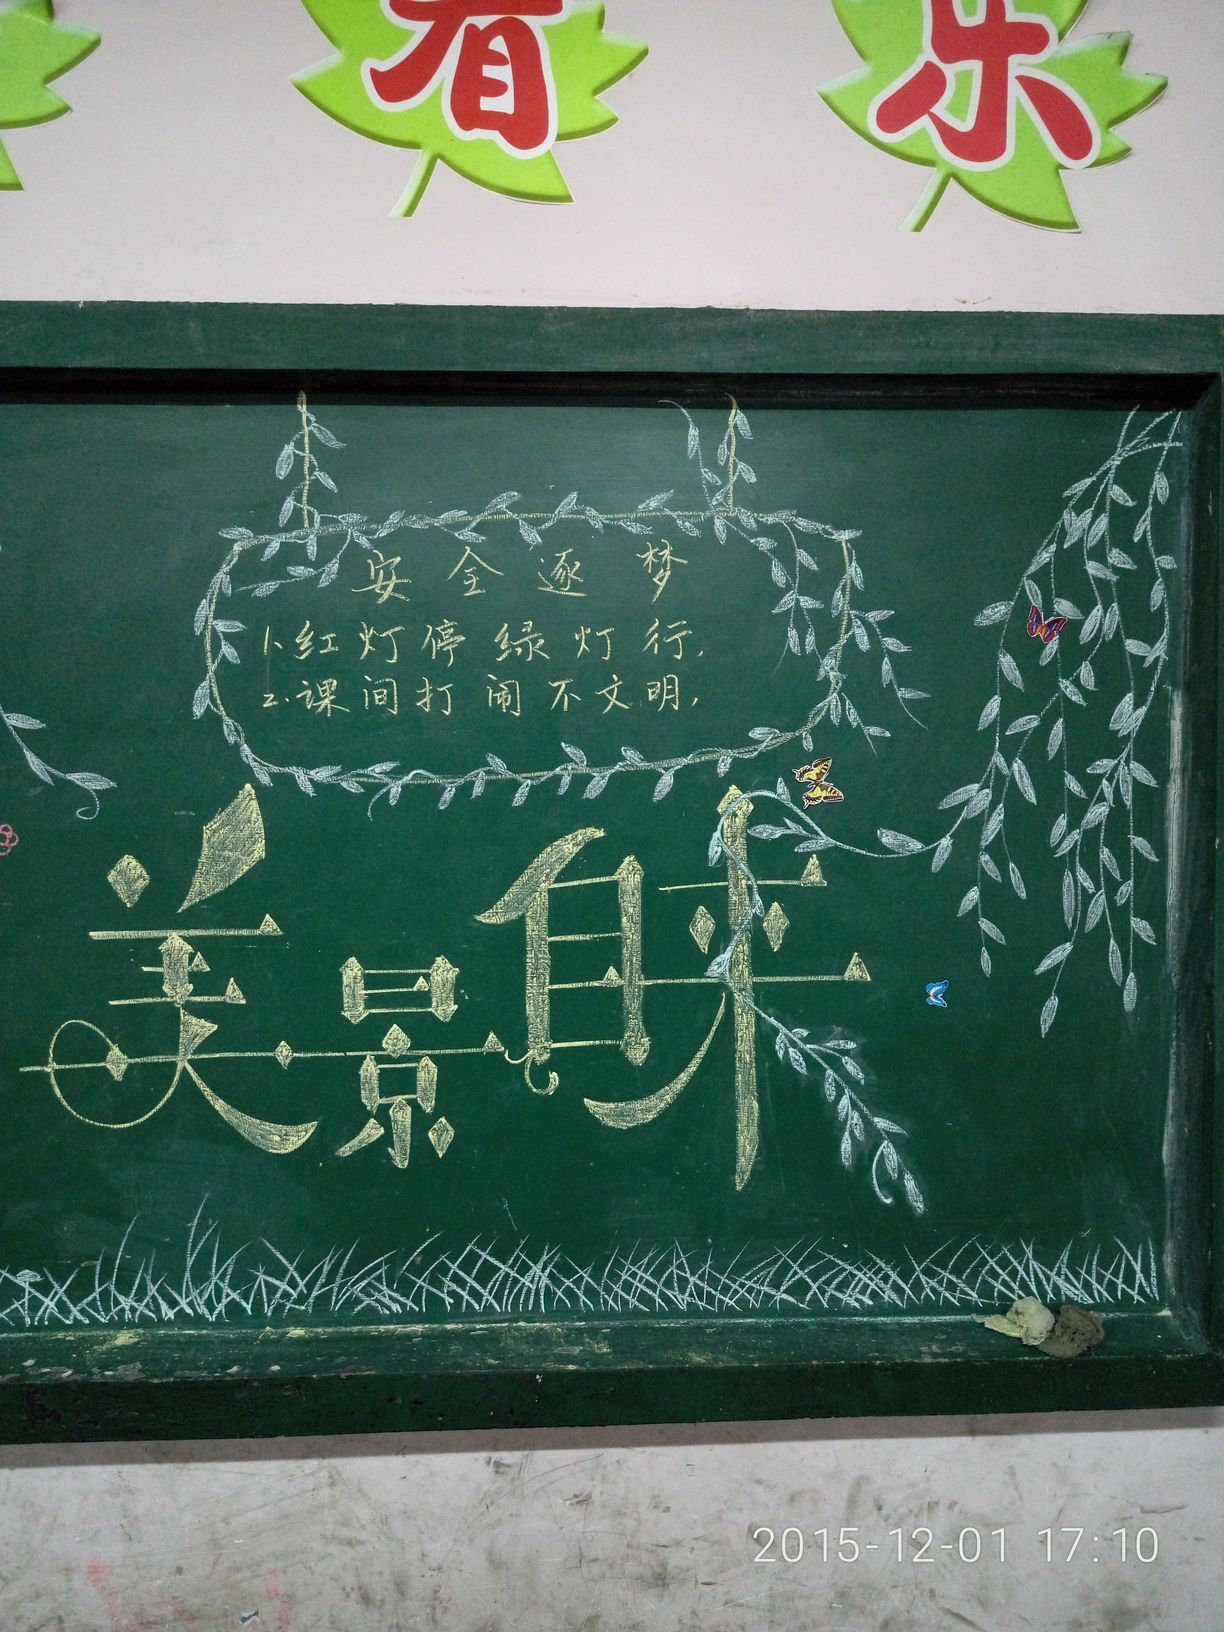 有 乐
安全逐梦
1.红灯停绿灯行.
2.课间打闹不文明,
美景自来
2015-12-01 17:10